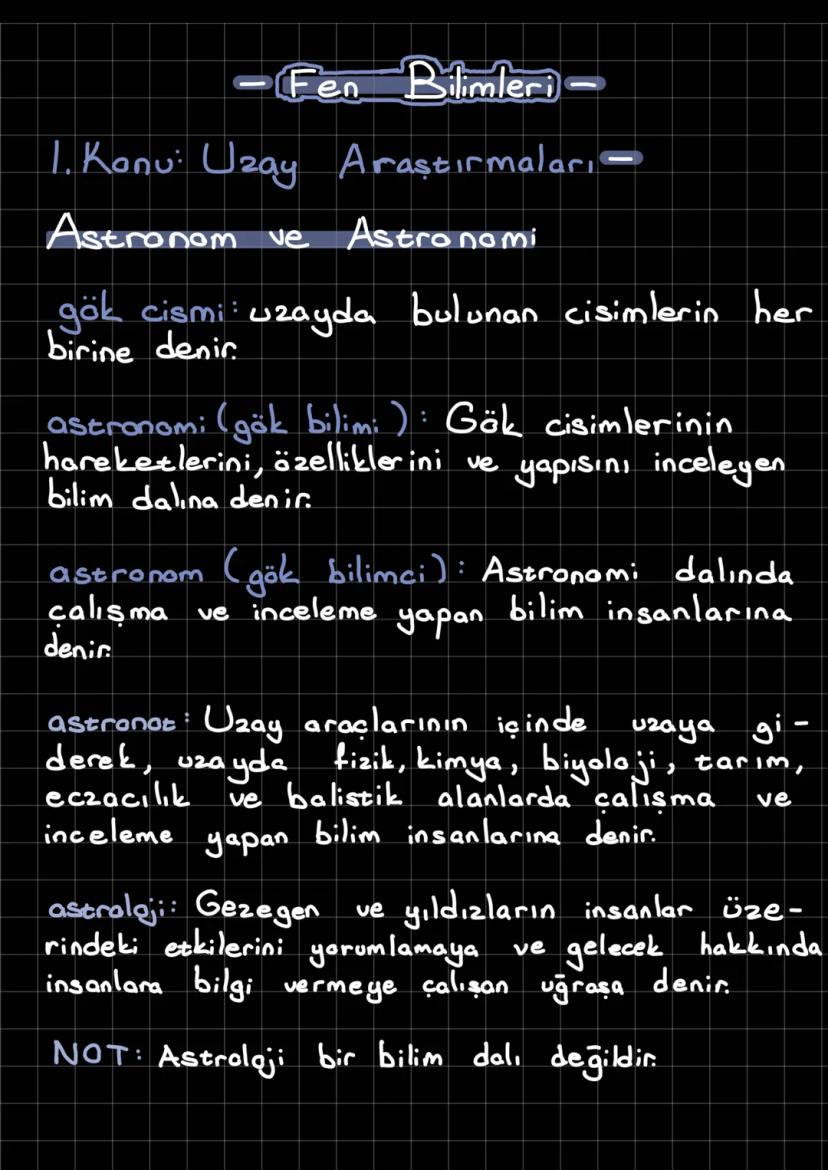 - Fen Bilimleri -
1. Konu: Uzay Araştırmaları -
Astronom ve Astronomi
gök cismi: uzayda bulunan cisimlerin her
birine denir.
astronomi (gök bilimi): Gök cisimlerinin
hareketlerini, özelliklerini ve yapısını inceleyen
bilim dalına denir.
astronom (gök bilimci): Astronomi dalında
çalışma ve inceleme yapan bilim insanlarına
denir.
astronot: Uzay araçlarının içinde uzaya gi-
derek, uzayda fizik, kimya, biyoloji, tarım,
eczacılık ve balistik alanlarda çalışma ve
inceleme yapan bilim insanlarına denir.
astroloji: Gezegen ve yıldızların insanlar üze-
rindeki etkilerini yorumlamaya ve gelecek hakkında
insanlara bilgi vermeye çalışan uğraşa denir.
NOT: Astroloji bir bilim dalı değildir.